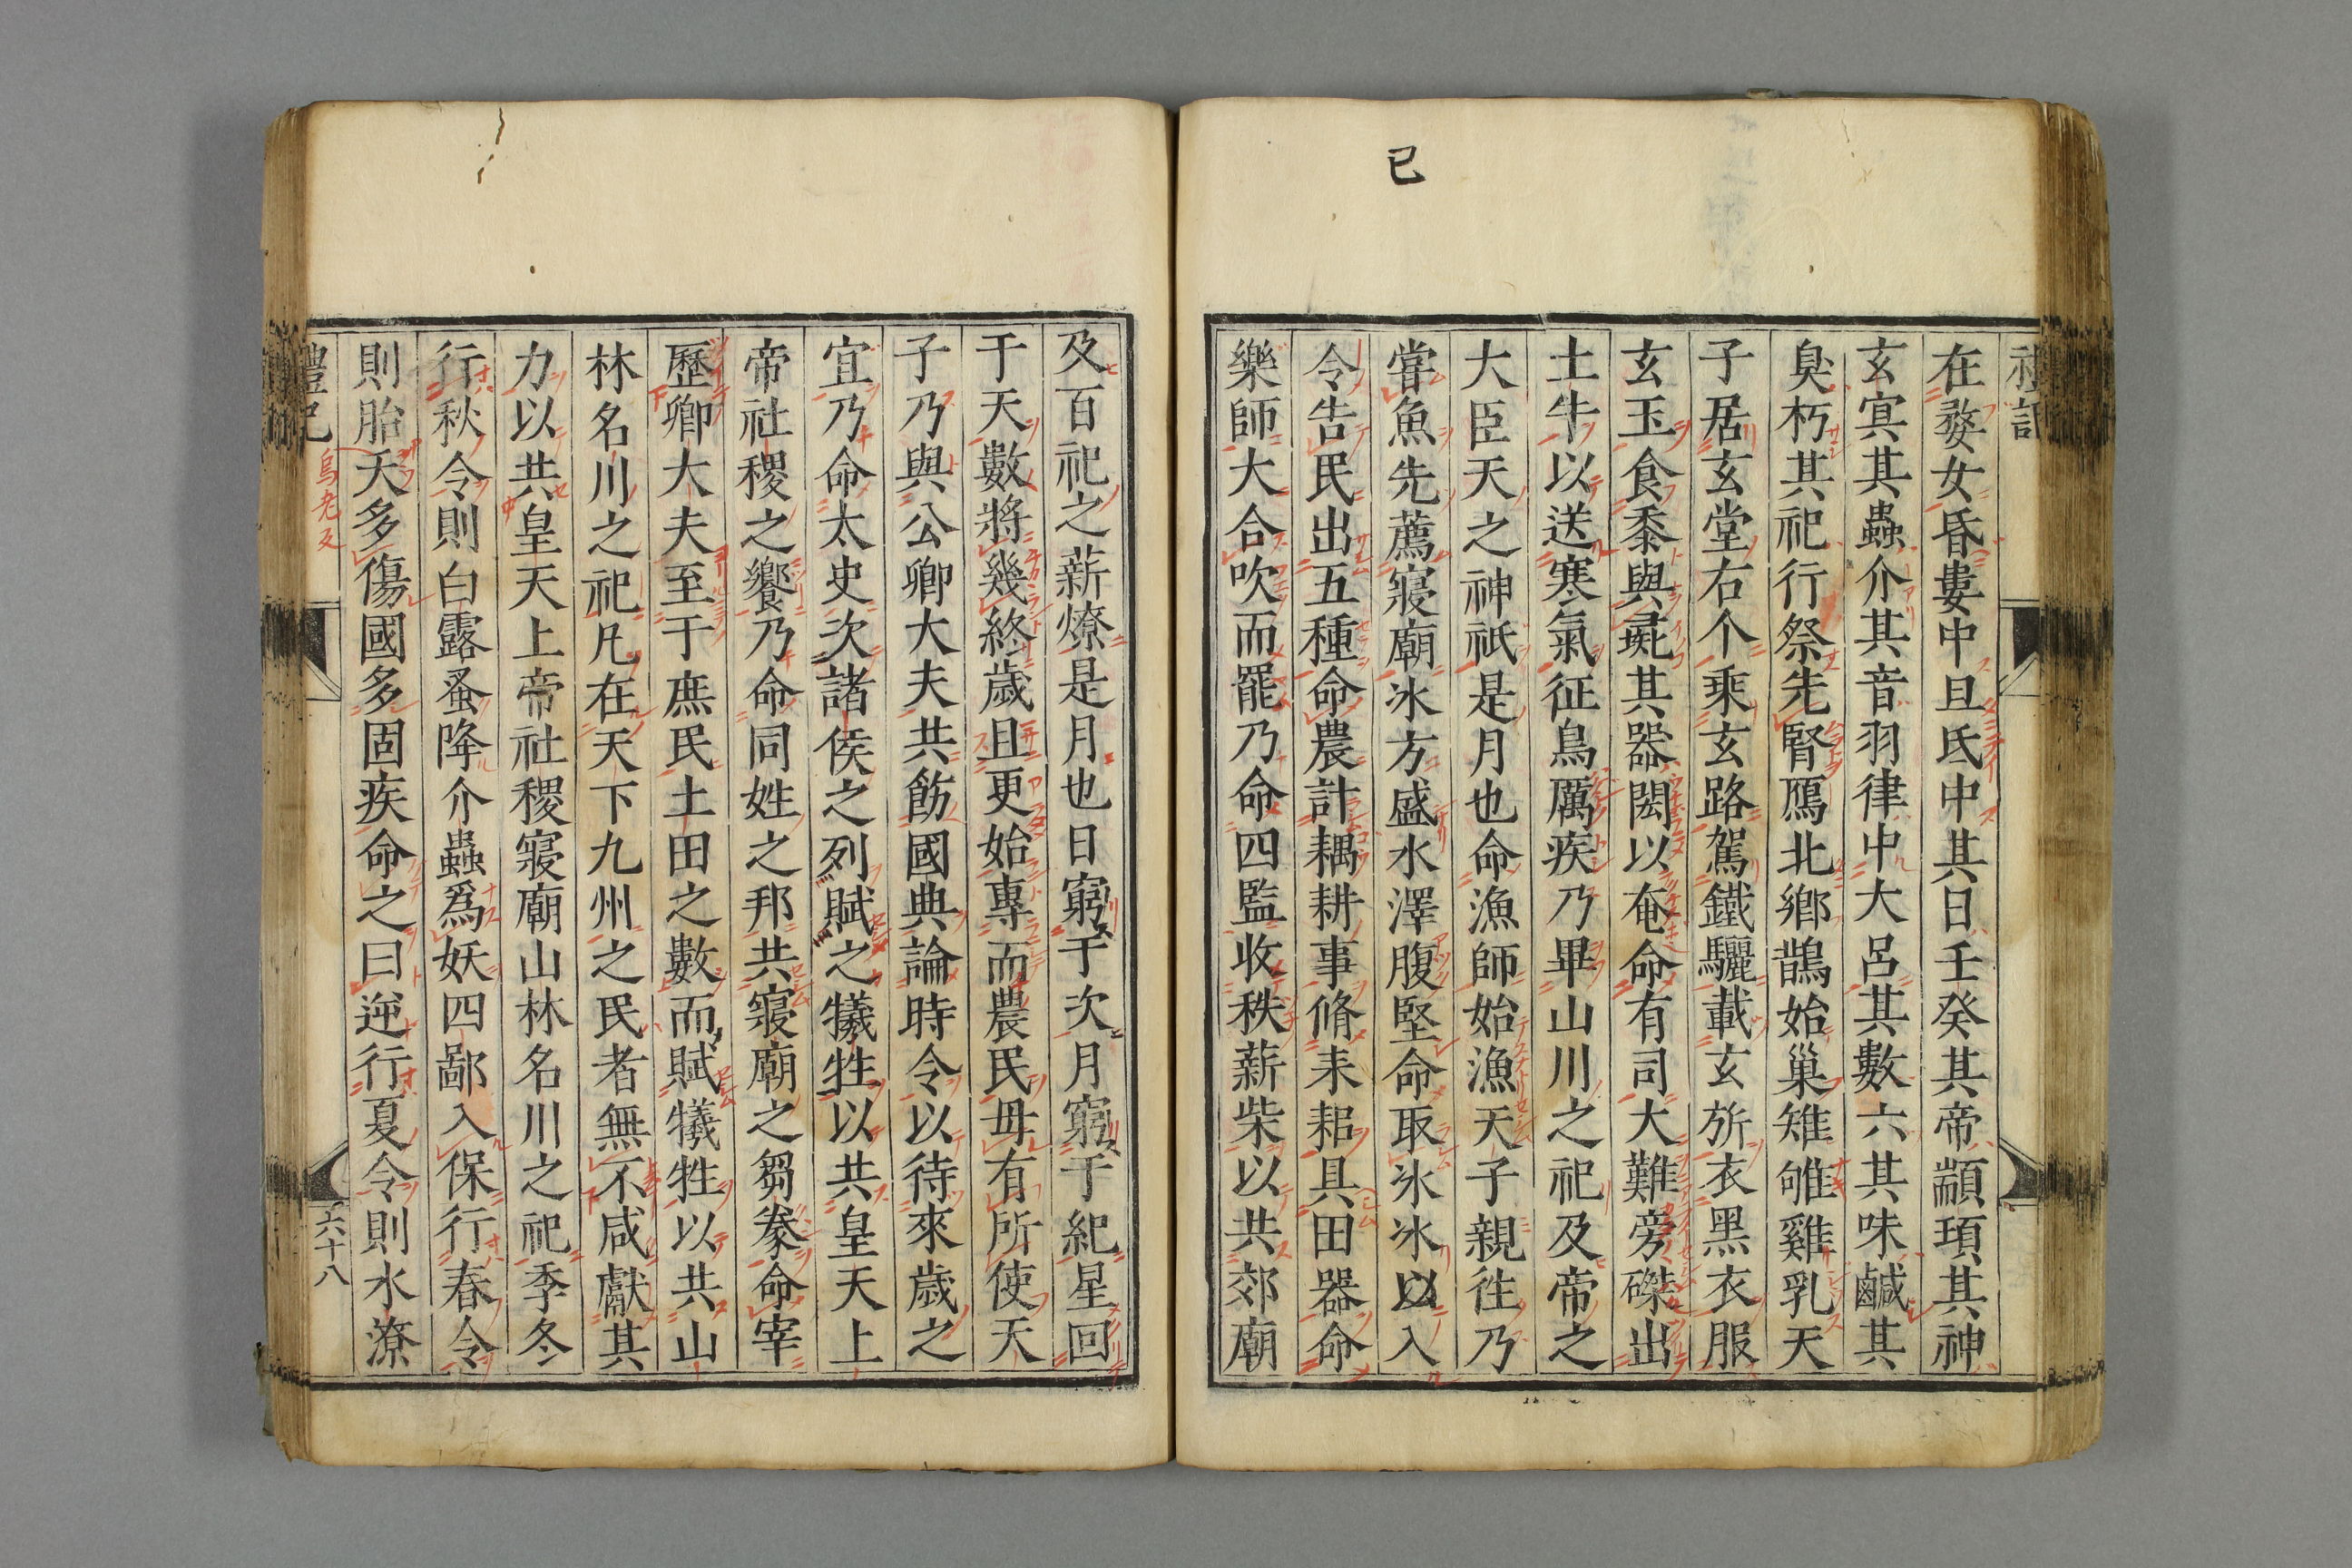 已
禮記
在婺女昏婁中旦氐中其日壬癸其帝顓頊其神
玄冥其蟲介其音羽律中大呂其數六其味鹹其
臭朽其祀行祭先腎鴈北鄉鵲始巢雉雊雞乳天
子居玄堂右个乘玄路駕鐵驪載玄旂衣黑衣服
玄玉食黍與彘其器閎以奄命有司大難旁磔出
土牛以送寒氣征鳥厲疾乃畢山川之祀及帝之
大臣天之神祇是月也命漁師始漁天子親往乃
嘗魚先薦寢廟冰方盛水澤腹堅命取冰冰以入
令告民出五種命農計耦耕事脩耒耜具田器命
樂師大合吹而罷乃命四監收秩薪柴以共郊廟
及百祀之薪燎是月也日窮于次月窮于紀星回
于天數將幾終歲且更始專而農民毋有所使天
子乃與公卿大夫共飭國典論時令以待來歲之
宜乃命太史次諸侯之列賦之犧牲以共皇天上
帝社稷之饗乃命同姓之邦共寢廟之芻豢命宰
歷卿大夫至于庶民土田之數而賦犧牲以共山
林名川之祀凡在天下九州之民者無不咸獻其
力以共皇天上帝社稷寢廟山林名川之祀季冬
行秋令則白露蚤降介蟲爲妖四鄙入保行春令
則胎夭多傷國多固疾命之曰逆行夏令則水潦
烏老反
禮記
六十八